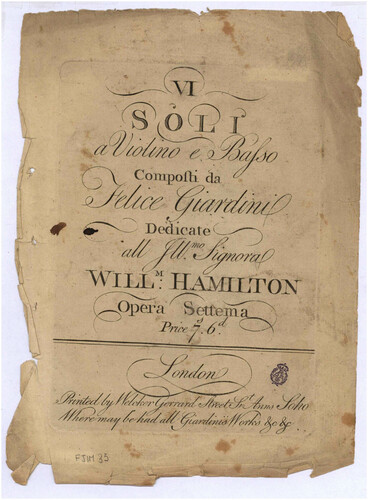 VI
SOLI
a Violino e Basso
Composti da
Felice Giardini
Dedicate
all Jll.mo Signora
WILL.M HAMILTON
Opera Settema
Price 7.s 6.d
London
Printed by Welcker Gerrard Street St. Anns Soho
Where may be had all Giardinis Works &c &c
FJIM 35